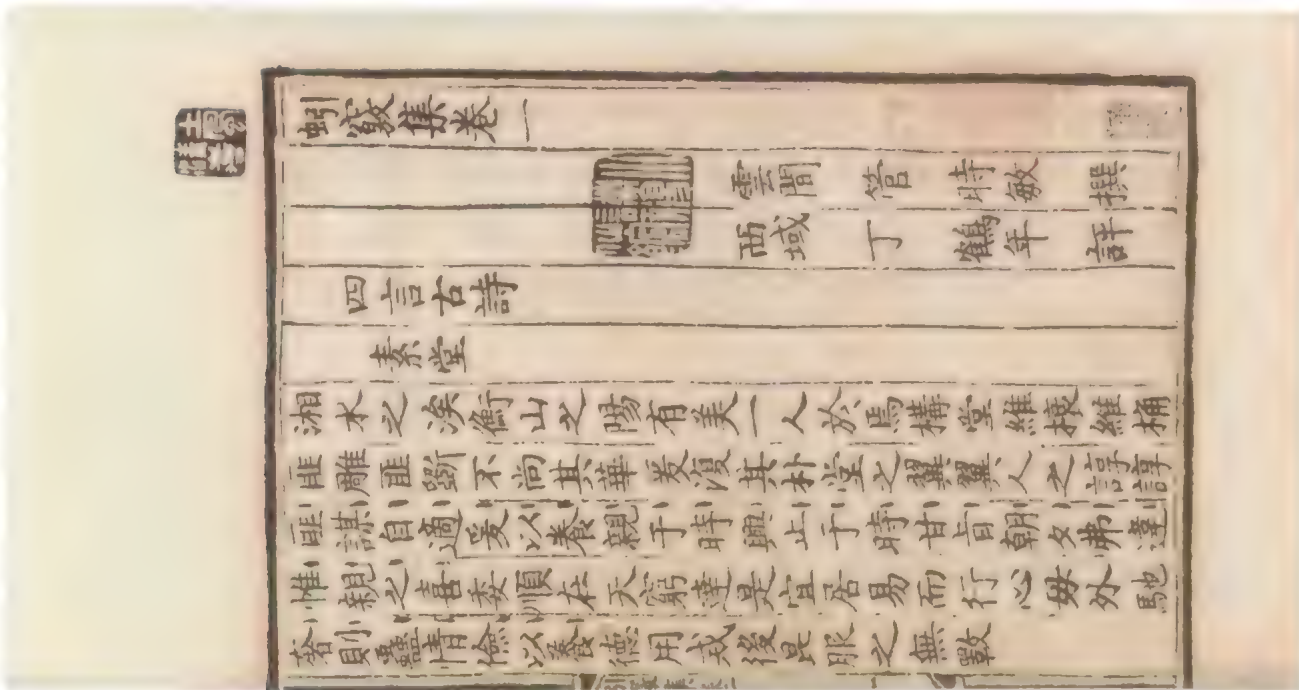 蚓竅集卷一
雲間 管 時敏 撰
西域 丁 鶴年 評
四言古詩
素堂
湘水之涘衡山之陽有美一人於焉構堂維榱維桷
匪雕匪斲不尚其華爰復其朴堂之翼翼人之諄諄
匪謀自適爰以養親于時興止于時甘旨朝夕弗違
惟親之喜委順在天窮達是宜居易而行心毋外馳
奢則蠱情儉以養德用戒後昆服之無斁